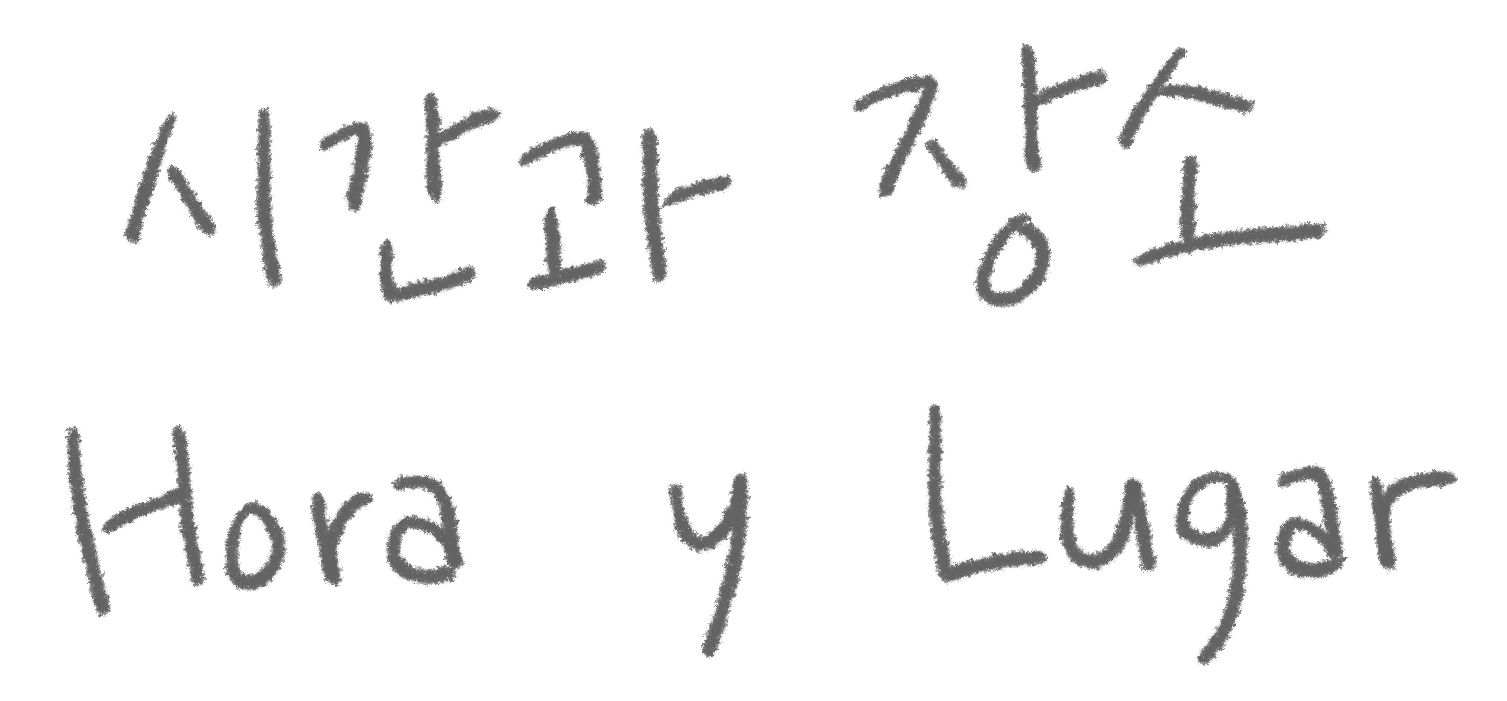 시간과 장소
Hora y Lugar